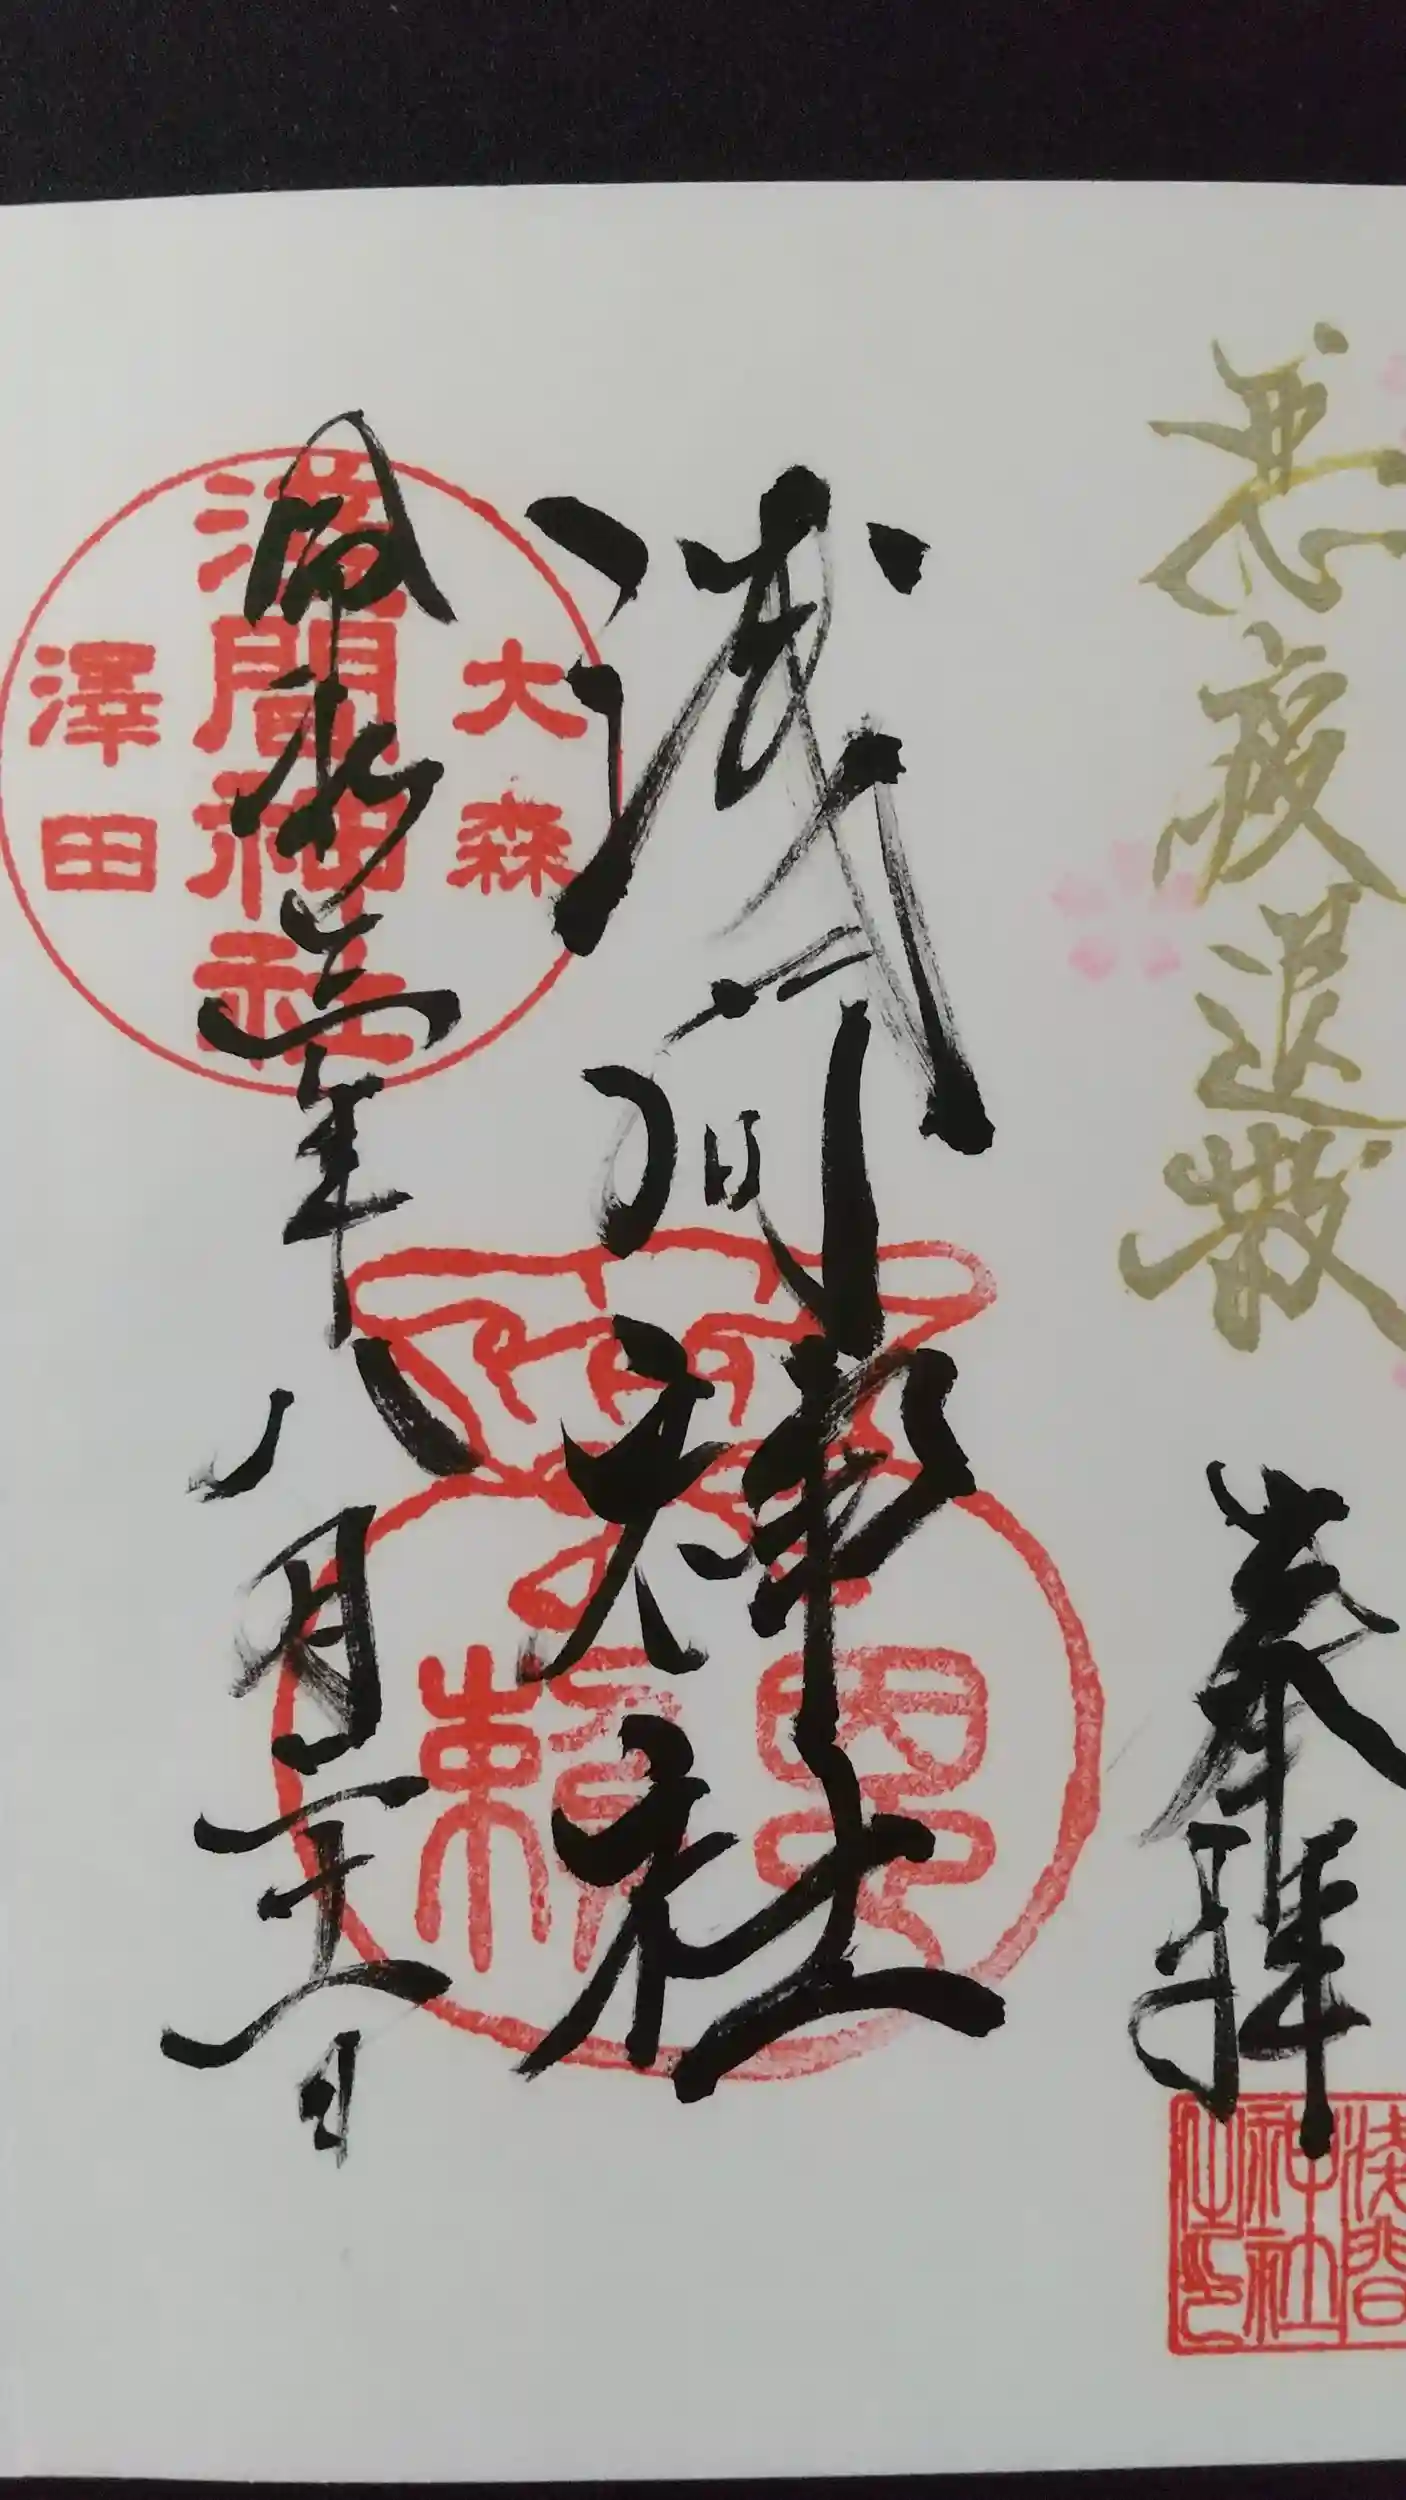 悪疫退散
奉拝
浅間
神社
之印
浅間神社
大森
浅間神社
澤田
令和三年八月二十二日